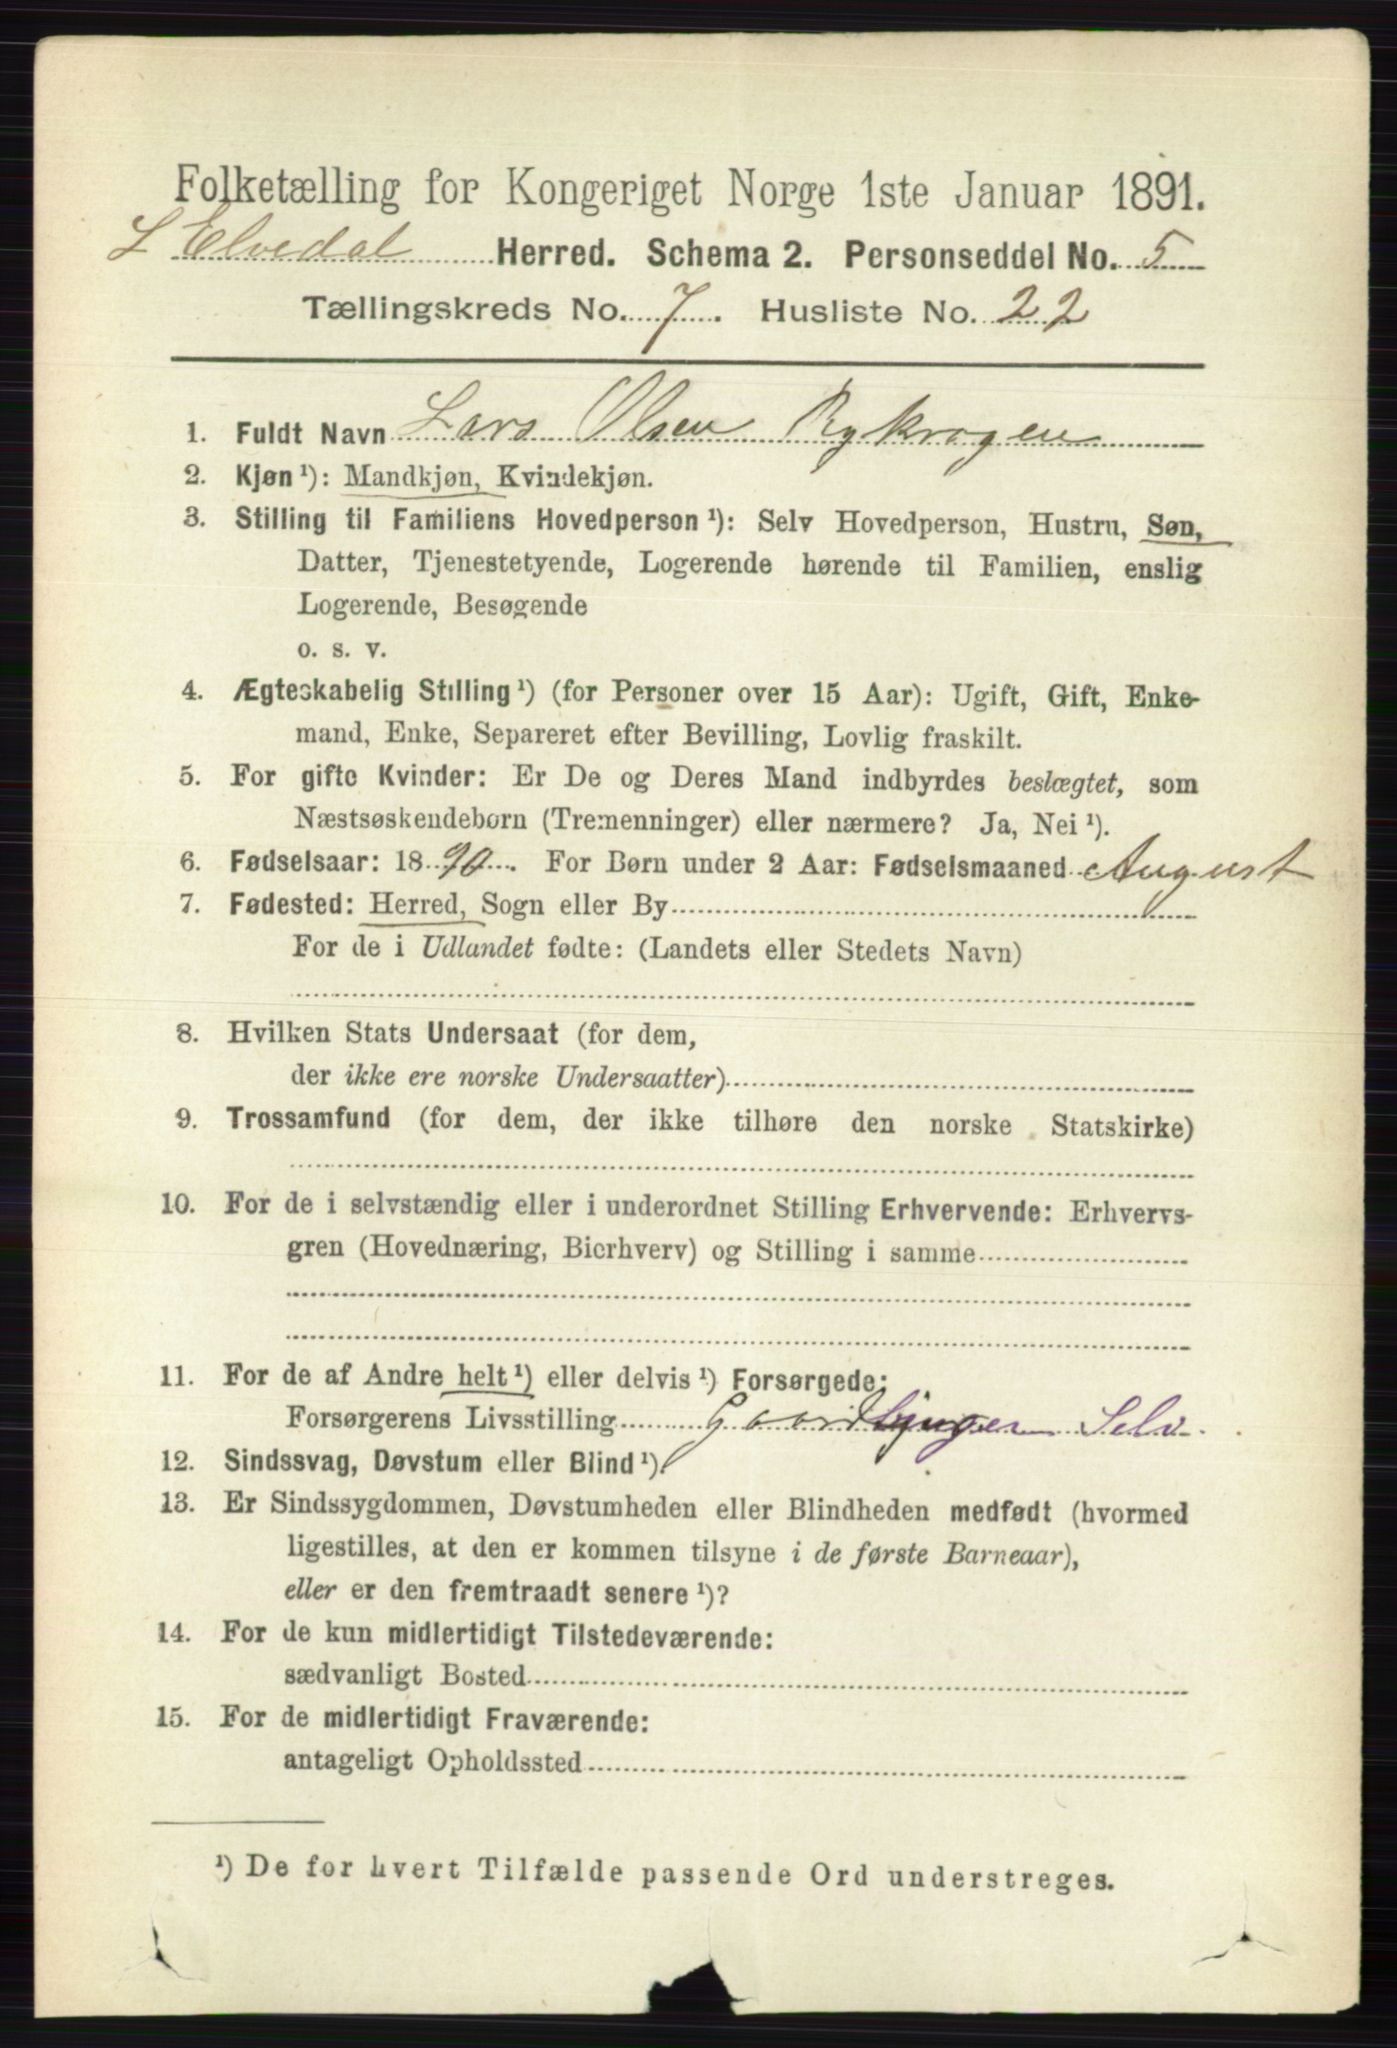 Folketælling for Kongeriget Norge 1ste Januar 1891.
L Elvedal Herred. Schema 2. Personseddel No. 5
Tællingskreds No. 7. Husliste No. 22
1. Fuldt Navn Lars Olsen Rykrogen
2. Kjøn¹): Mandkjøn, Kvindekjøn.
3. Stilling til Familiens Hovedperson¹): Selv Hovedperson, Hustru, Søn,
Datter, Tjenestetyende, Logerende hørende til Familien, enslig
Logerende, Besøgende
o. s. v.
4. Ægteskabelig Stilling¹) (for Personer over 15 Aar): Ugift, Gift, Enke-
mand, Enke, Separeret efter Bevilling, Lovlig fraskilt.
5. For gifte Kvinder: Er De og Deres Mand indbyrdes beslægtet, som
Næstsøskendebørn (Tremenninger) eller nærmere? Ja, Nei¹).
6. Fødselsaar: 1890. For Børn under 2 Aar: Fødselsmaaned August
7. Fødested: Herred, Sogn eller By
For de i Udlandet fødte: (Landets eller Stedets Navn)
8. Hvilken Stats Undersaat (for dem,
der ikke ere norske Undersaatter)
9. Trossamfund (for dem, der ikke tilhøre den norske Statskirke)
10. For de i selvstændig eller i underordnet Stilling Erhvervende: Erhvervs-
gren (Hovednæring, Bierhverv) og Stilling i samme
11. For de af Andre helt¹) eller delvis¹) Forsørgede:
Forsørgerens Livsstilling Selv.
12. Sindssvag, Døvstum eller Blind¹).
13. Er Sindssygdommen, Døvstumheden eller Blindheden medfødt (hvormed
ligestilles, at den er kommen tilsyne i de første Barneaar),
eller er den fremtraadt senere¹)?
14. For de kun midlertidigt Tilstedeværende:
sædvanligt Bosted
15. For de midlertidigt Fraværende:
antageligt Opholdssted
¹) De for hvert Tilfælde passende Ord understreges.